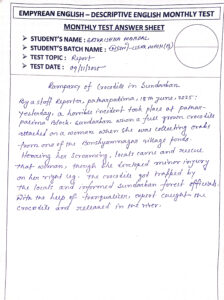 EMPYREAN ENGLISH – DESCRIPTIVE ENGLISH MONTHLY TEST
MONTHLY TEST ANSWER SHEET
➤ STUDENT'S NAME : MANDAL
➤ STUDENT'S BATCH NAME :
➤ TEST TOPIC : Report
➤ TEST DATE :
of Crocodile in Sundarban
By a staff Reporter, patharpratima, 18th June, 2025:
yesterday, a horrible incident took place at Pathar-
pratima Block Sundarban when a full grown crocodile
attacked on a woman when she was collecting crabs
form one of the village ponds.
Hearing her screaming, locals came and rescue
that woman, though she developed minor injury
on her right leg. The crocodile got trapped by
the locals and informed Sundarban forest officials.
With the help of tranquilizer, expert caught the
crocodile and released in the river.